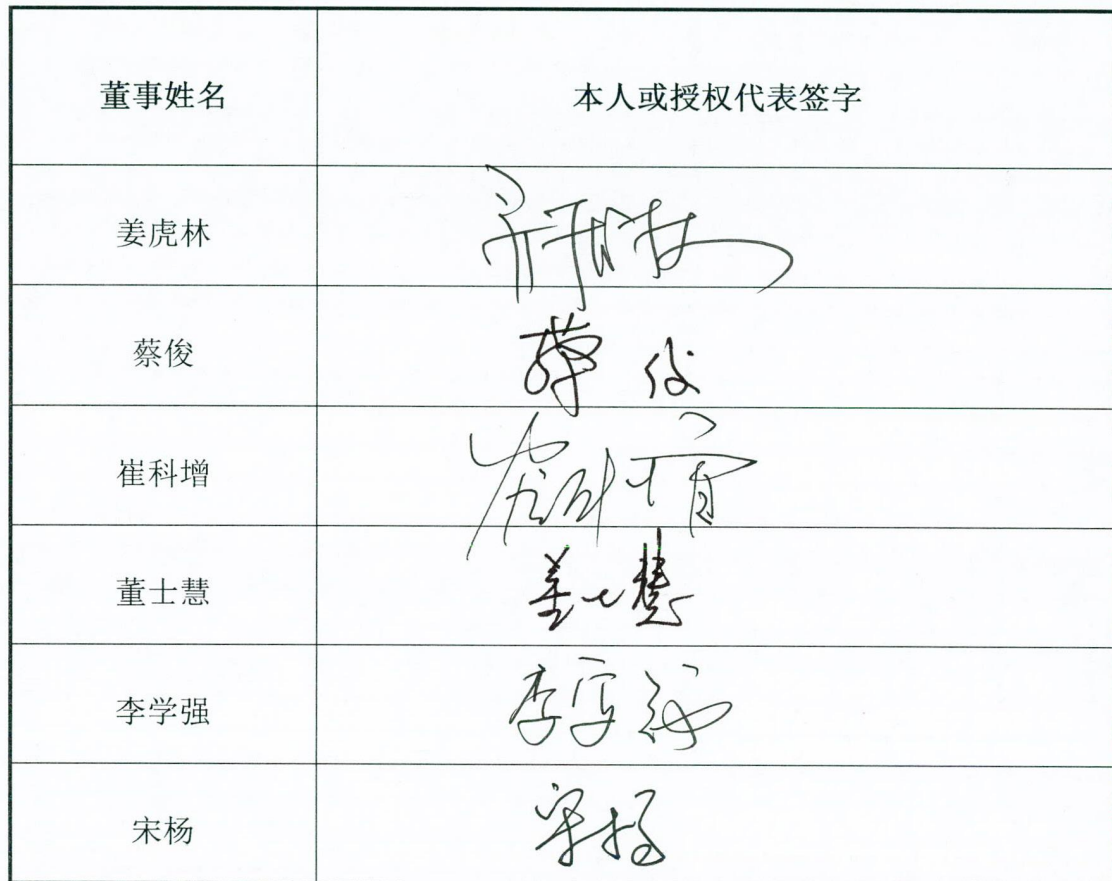 董事姓名 本人或授权代表签字
姜虎林
蔡俊 蔡俊
崔科增
董士慧 董士慧
李学强 李学强
宋杨 宋杨